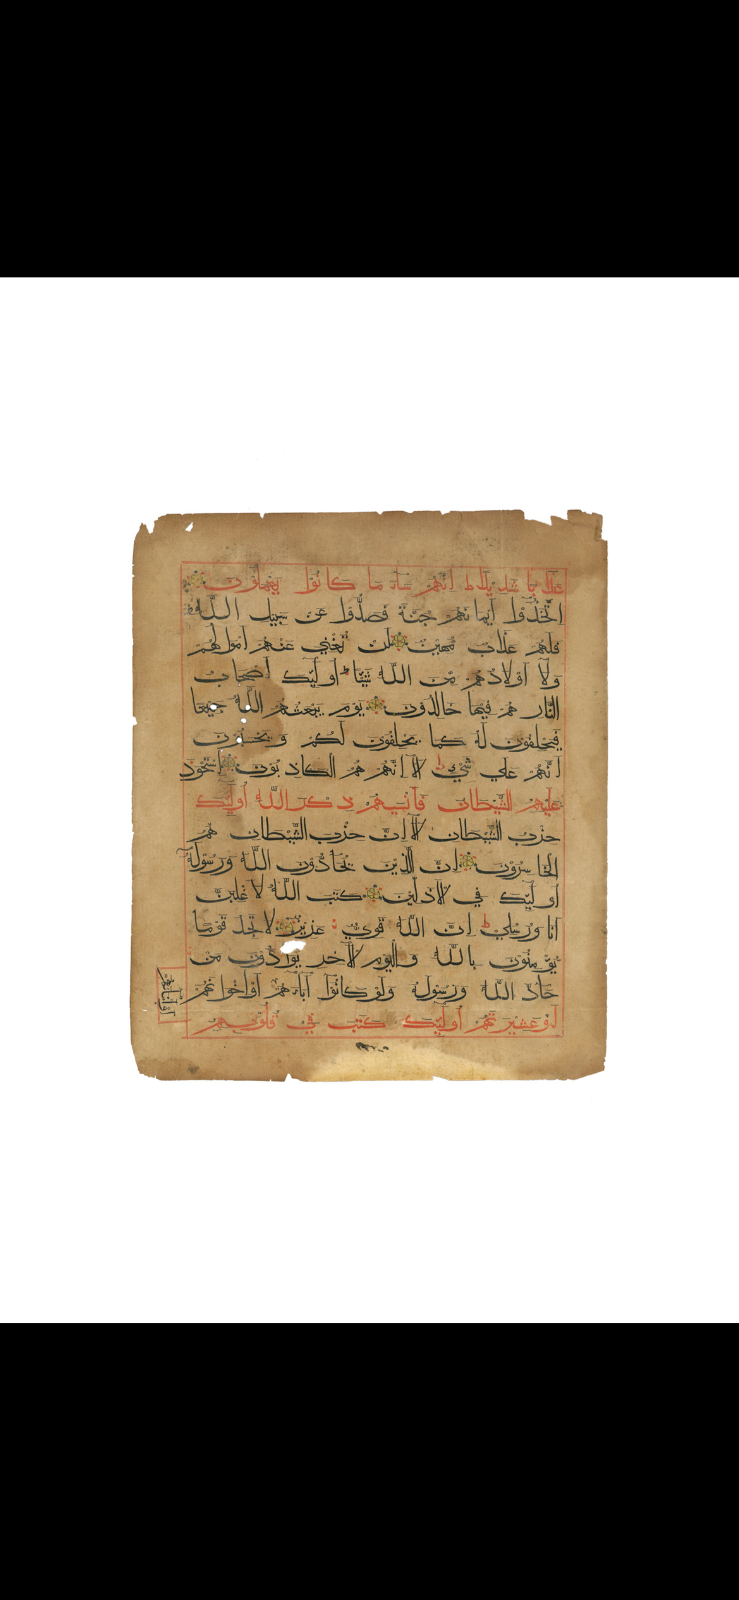 عذابا شديدا ط انهم ساء ما كانوا يعملون
اتخذوا ايمانهم جنة فصدوا عن سبيل الله
فلهم عذاب مهين لن تغني عنهم اموالهم
ولا اولادهم من الله شيئا ط اوليك اصحاب
النار هم فيها خالدون يوم يبعثهم الله جميعا
فيحلفون له كما يحلفون لكم ويحسبون
انهم علي شيء ط الا انهم هم الكاذبون استحوذ
عليهم الشيطان فانسيهم ذكر الله اوليك
حزب الشيطان الا ان حزب الشيطان هم
الخاسرون ان الذين يحادون الله ورسوله
اوليك في الاذلين كتب الله لاغلبن
انا ورسلي ط ان الله قوي عزيز لا تجد قوما
يؤمنون بالله واليوم الاخر يوادون من
حاد الله ورسوله ولو كانوا اباءهم او اخوانهم
او عشيرتهم اوليك كتب في قلوبهم
او ابناءهم